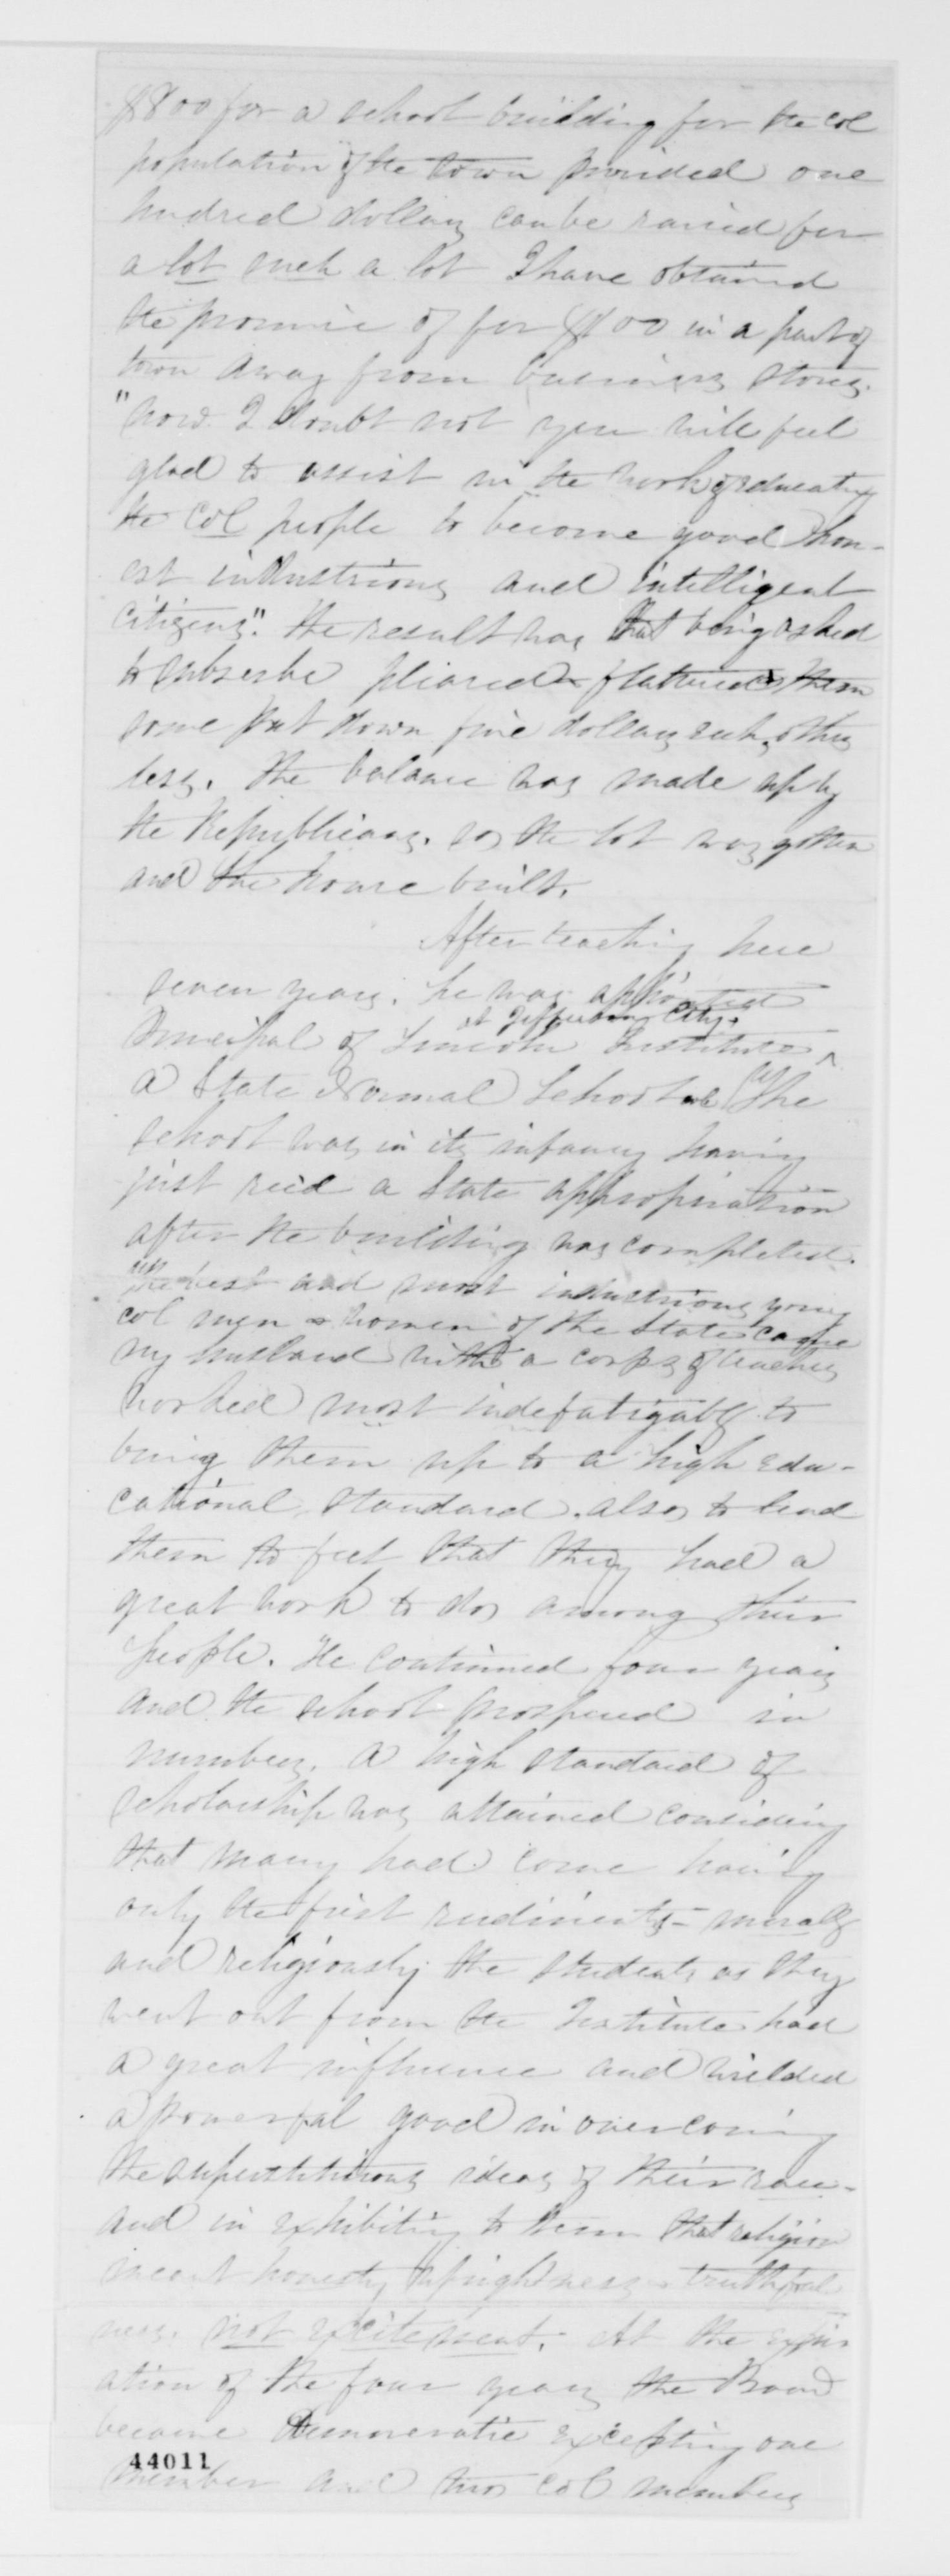 $800 for a school building for the col
population of the town provided one
hundred dollars can be raised for
a lot such a lot I have obtained
the promise of for $100 in a part of
town away from business stores.
"now I doubt not you will feel
glad to assist in the work of educating
the col people to become good hon-
est industrious and intelligent
citizens". the result was that being asked
to subscribe pleased & flattered them
some put down five dollars each, others
less. the balance was made up by
the Republicans. so the lot was gotten
and the house built.
After teaching here
seven years. he was appointed
at Jefferson City.
Principal of Lincoln Institute ^
a State Normal School The
school was in its infancy having
just rec'd a State appropriation
after the building was completed.
as
The best and most industrious young
col men & women of the State came
my husband with a corps of teachers
worked most indefatigably to
bring them up to a high edu-
cational standard. also to lead
them to feel that they had a
great work to do among their
people. He continued four years
and the school prospered in
numbers. A high standard of
scholarship was attained considering
that many had come having
only the first rudiments - morally
and religiously the students as they
went out from the Institute had
a great influence and wielded
a powerful good in overcoming
the superstitious ideas of their race-
and in exhibiting to them that religion
meant honesty uprightness truthful
ness. not excitement. At the expir
ation of the four years the Board
became Democratic excepting one
44011
member and two col members